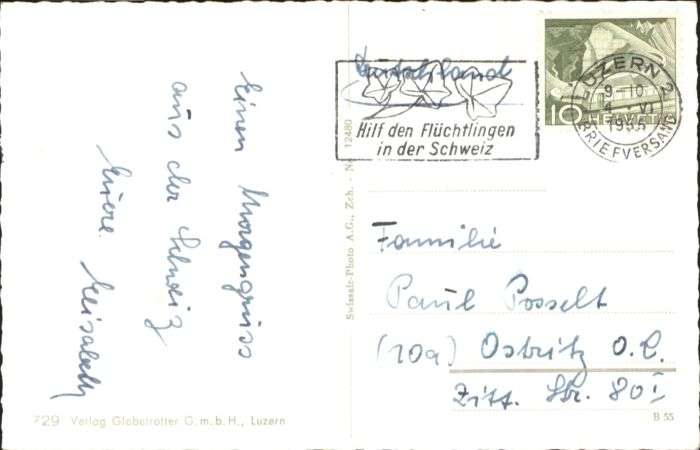 Einen Morgengruss
aus der Schweiz
Eure Elisabeth
729 Verlag Globetrotter G.m.b.H., Luzern
Swissair-Photo A.G., Zch. - Nr. 12480
Deutschland
Hilf den Flüchtlingen
in der Schweiz
10 HELVETIA
LUZERN 2
9-10
4. VI
1955
BRIEFVERSAND
Familie
Paul Posselt
(10a) Ostritz O.L.
Zitt. Str. 80 I
B 55